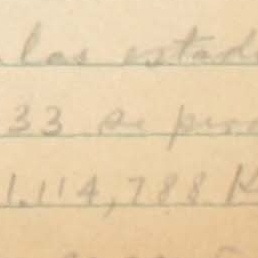 las estad
33 se pro
1,114,788 K